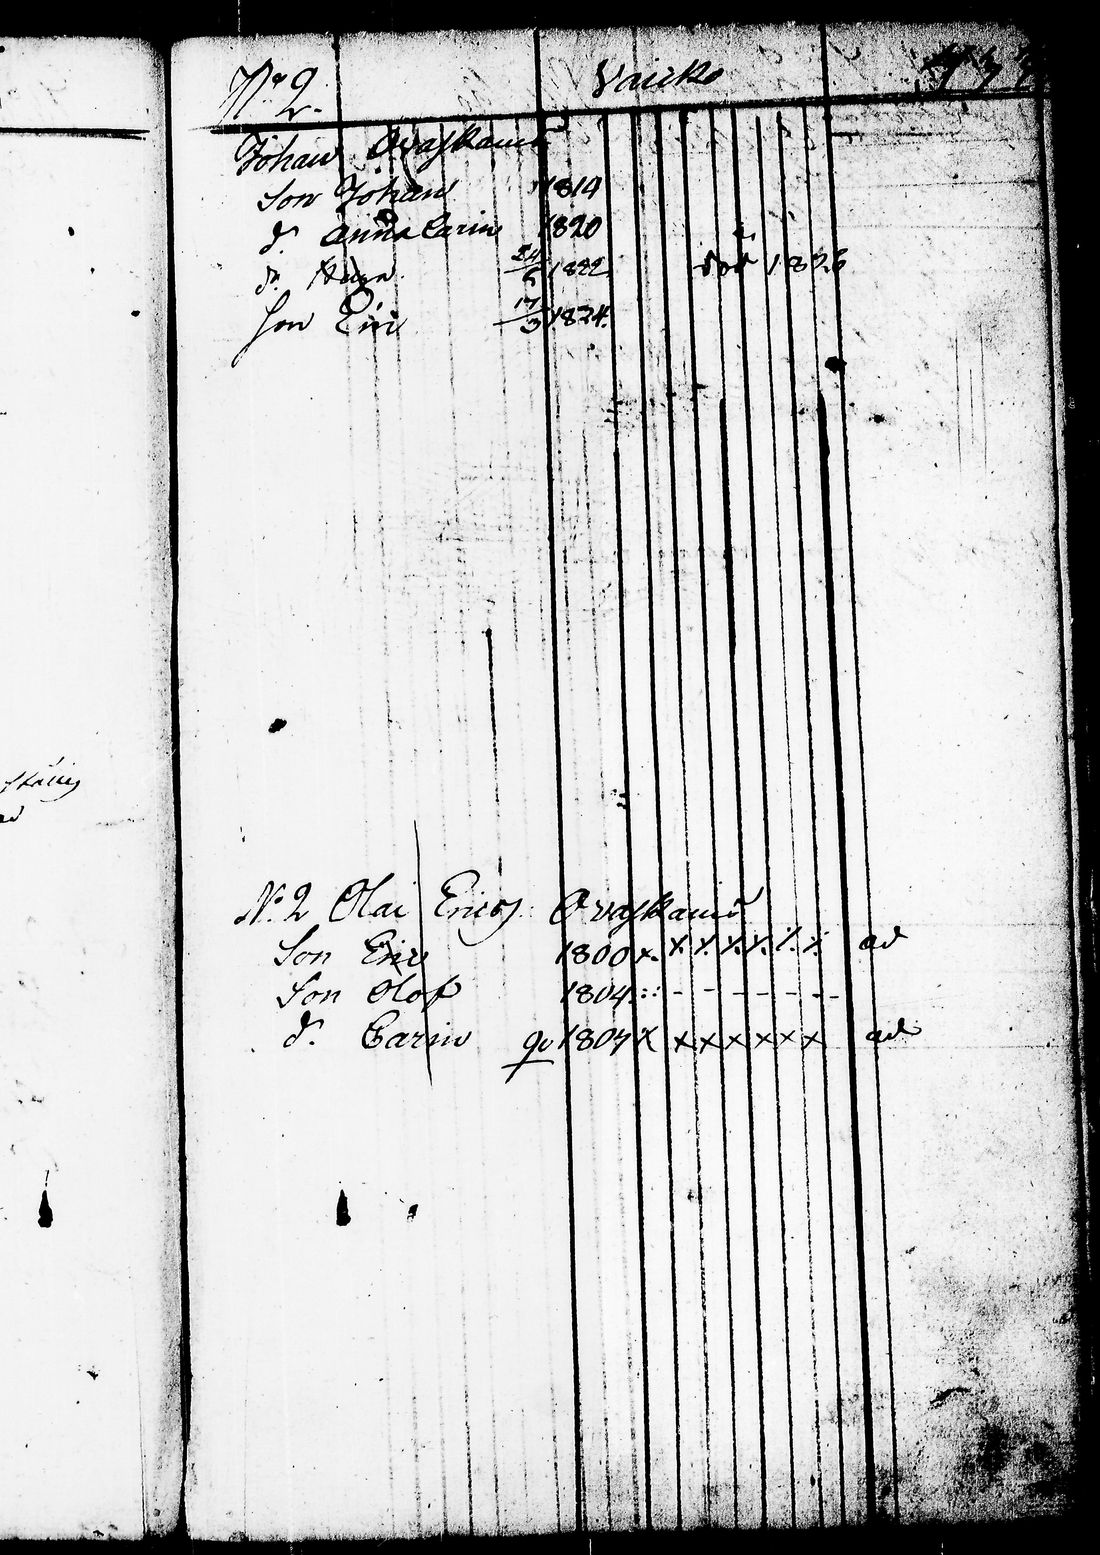 No 2. Vaicko
Johan Ovaskainē
Son Johan 1814
dr Anna Carin 1820
dr Helga 24/6 1822 död 1826
Son Eric 17/3 1824.
No 2 Olai Erics: Ovaskainē
Son Eric 1800 x. x x. x. x. x. x. ad
Son Olof 1804 :: - - - - - - -
dr. Carin 1807 x x x x x x x ad